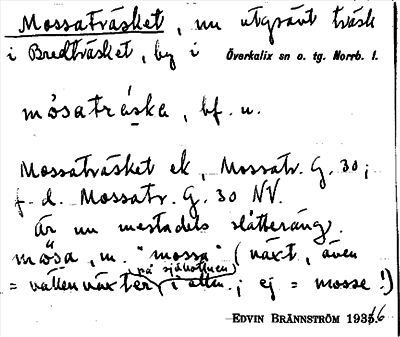 Mossaträsket, nu utgrävt träsk
i Bredträsket, by i Överkalix sn o. tg. Norrb. l.
mósatrȧska, bf. n.
Mossaträsket ek, Mossatr. G. 30;
f. d. Mossatr. G. 30 NV.
Är nu mestadels slåtteräng.
mósa, m. "mossa" (växt, även
på sjöbottnen
= vattenväxter i allm.; ej = mosse!)
EDVIN BRÄNNSTRÖM 1936